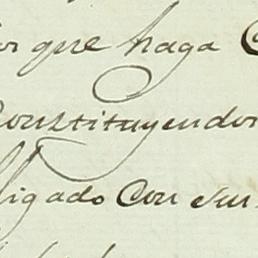 or que haga
Constituyendo
ligado Con su